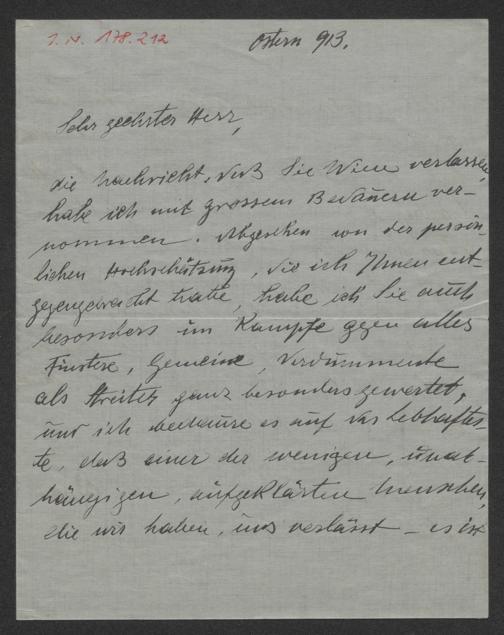 I.N. 178.212
Ostern 913.
Sehr geehrter Herr,
die Nachricht, daß Sie Wien verlassen,
habe ich mit grossem Bedauern ver-
nommen. Abgesehen von der persön-
lichen Hochschätzung, die ich Ihnen ent-
gegengebracht habe, habe ich Sie auch
besonders im Kampfe gegen alles
Finstere, Gemeine, Verdummende
als Streiter ganz besonders gewertet,
und ich bedaure es auf das Lebhaftes-
te, daß einer der wenigen, unab-
hängigen, aufgeklärten Menschen,
die wir haben, uns verlässt – es ist